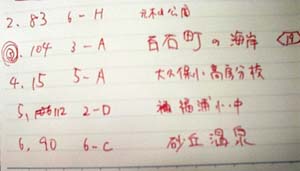 2. 83 6-H 元木山公園
③. 104 3-A 百石町の海岸 19
4. 15 5-A 大久保小・高房分校
5. 112 2-D 福浦小・中
6. 90 6-C 砂丘温泉